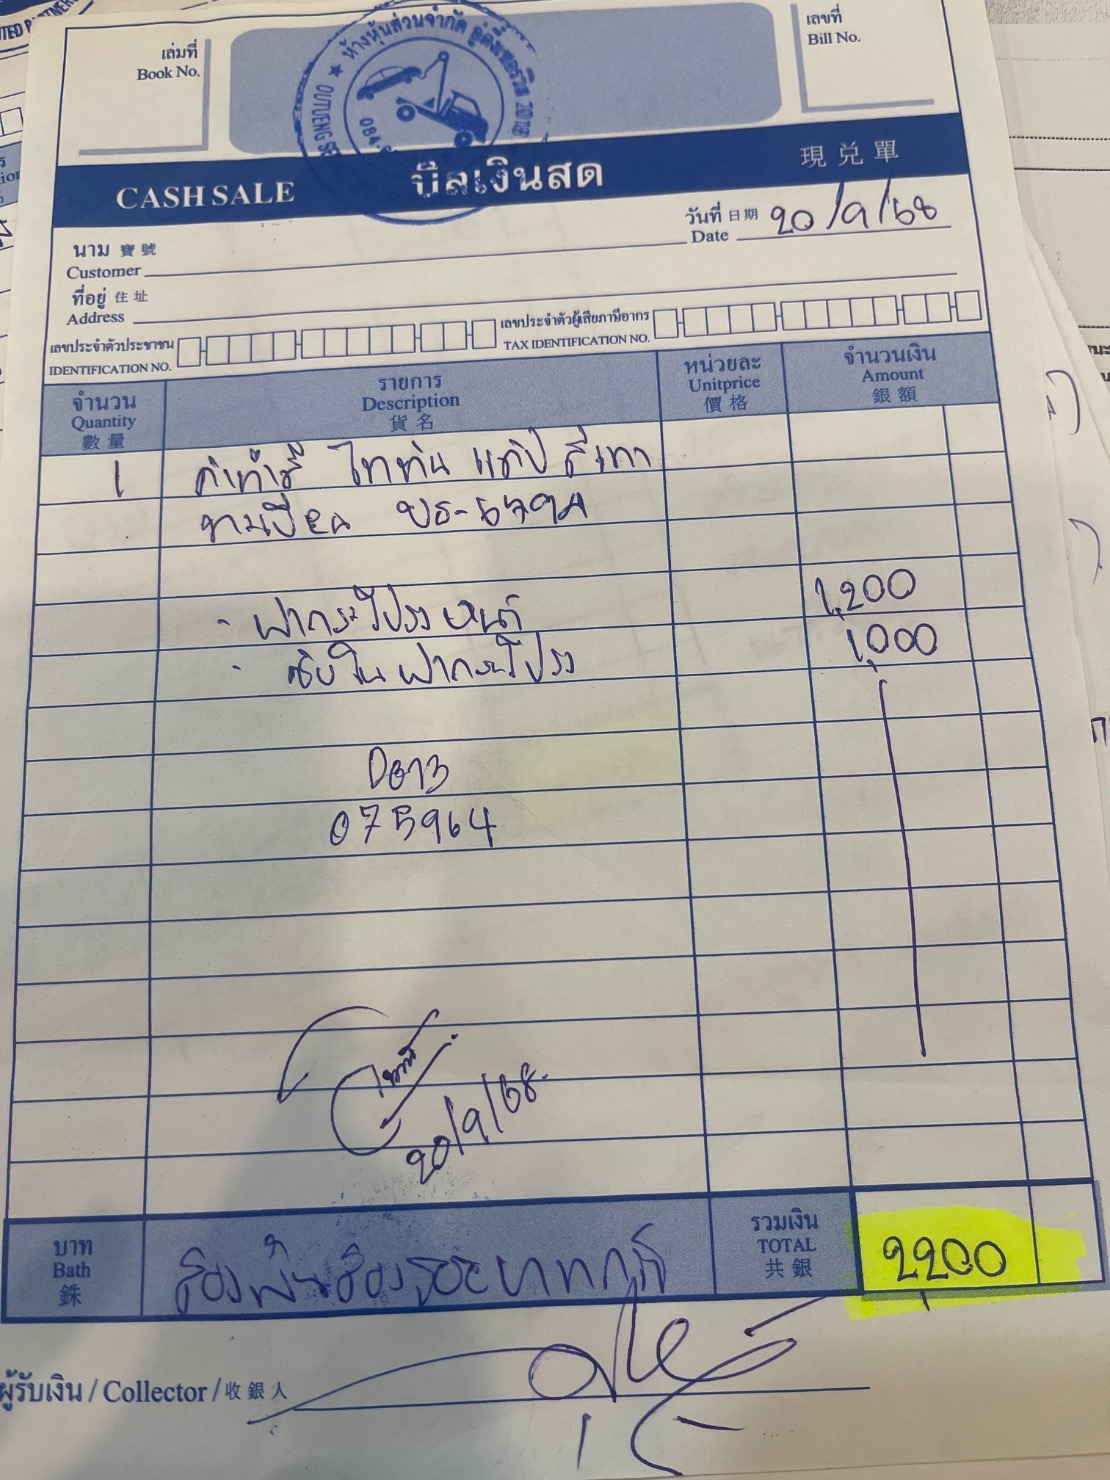 ห้างหุ้นส่วนจำกัด
084
เล่มที่
Book No.
เลขที่
Bill No.
CASH SALE บิลเงินสด 現兌單
วันที่ 日期 20/9/68
Date
นาม 寶號
Customer
ที่อยู่ 住址
Address
เลขประจำตัวประชาชน
IDENTIFICATION NO.
เลขประจำตัวผู้เสียภาษีอากร
TAX IDENTIFICATION NO.
จำนวน
Quantity
數量
รายการ
Description
貨名
หน่วยละ
Unitprice
價格
จำนวนเงิน
Amount
銀額
1 ค่าทำสี ไททัน แคป สีเทา
- ฝากระโปรงหน้า 1,200
- ในฝากระโปรง 1,000
075964
20/9/68
บาท
Bath
銖
สองพันสองร้อยบาทถ้วน
รวมเงิน
TOTAL
共銀
2200
ผู้รับเงิน / Collector / 收銀人